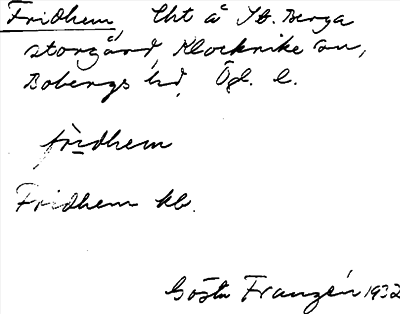 Fridhem, lht å St. Berga
storgård, Klockrike sn,
Bobergs hd, Ög. l.
fridhem
Fridhem kb.
Gösta Franzén 1932